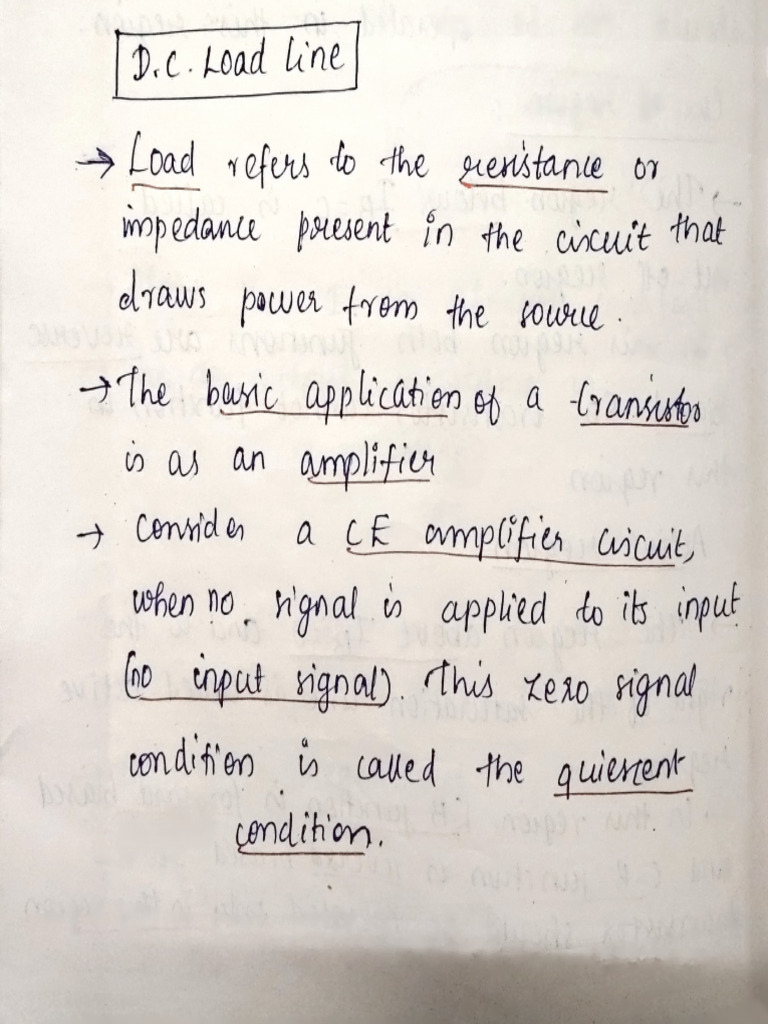 D.C. Load line
→ Load refers to the resistance or
impedance present in the circuit that
draws power from the source.
→ The basic application of a transistor
is as an amplifier
→ Consider a CE amplifier circuit,
when no signal is applied to its input
(no input signal). This zero signal
condition is called the quiescent
condition.